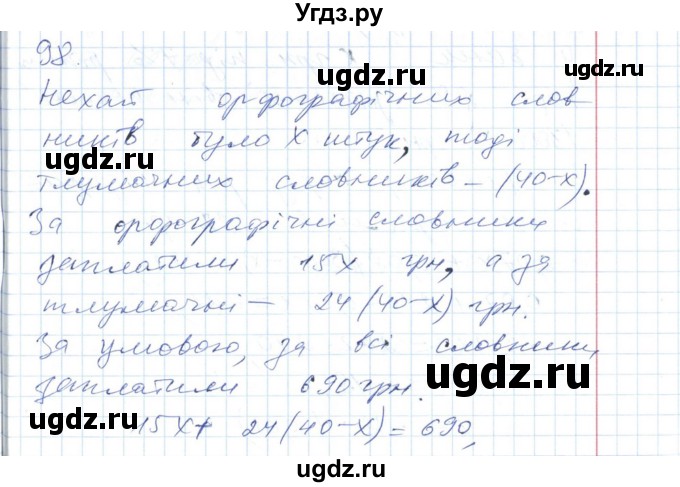 Угдз.ру
98
ugdz.ru
ugdz.ru
Нехай орфографічних слов
ників було x штук, тоді
ugdz.ru
ugdz.ru
тлумачних словників – (40-x).
За орфографічні словники
ugdz.ru
заплатили 15x грн, а за
ugdz.ru
тлумачні – 24(40-x) грн.
За умовою, за всі словники
ugdz.ru
заплатили 690 грн.
ugdz.ru
15x + 24(40-x) = 690,
ugdz.ru
ugdz.ru